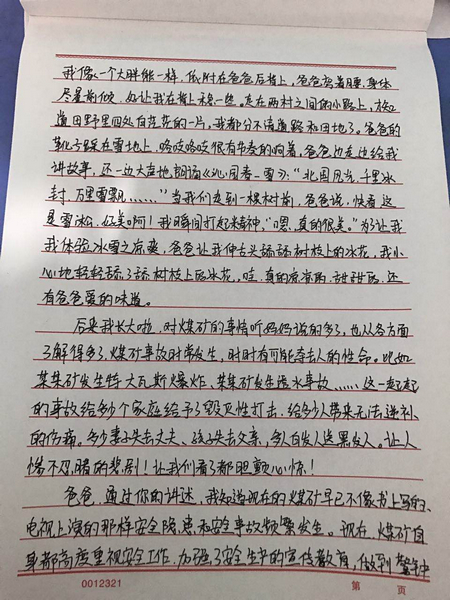 我像一个大胖熊一样，低附在爸爸后背上，爸爸弯着腰，身体
尽量前倾，好让我在背上舒一些。走在两村之间的小路上，校
道田野里四处白茫茫的一片，我都分不清道路和田地了。爸爸的
靴子踩在雪地上，咯吱咯吱很有节奏的响着，爸爸边走边给我
讲故事，还一边大声地朗诵《沁园春·雪》，“北国风光，千里冰
封，万里雪飘……”当我们走到一棵树前，爸爸说，快看这
是雪冰，好美啊！我瞬间打起来精神，“嗯，真的很美。”为了让我
我体验冰雪之凉爽，爸爸让我伸舌头舔舔树枝上的冰花，我小
心地轻轻舔了舔树枝上的冰花，哇，真的凉凉的，甜甜的，还
有爸爸爱的味道。
后来我长大啦，对煤矿的事情听妈妈说的多了，也从各方面
了解得多了，煤矿事故时常发生，时时有可能夺去人的性命。比如
某某矿发生特大瓦斯爆炸，某某矿发生透水事故……，这一起起
的事故给多少个家庭给予了毁灭性打击，给多少人带来无法弥补
的伤痛。多少妻子失去丈夫、孩子失去父亲，令人白发人送黑发人。让人
惨不忍睹的悲剧！让我们看了都胆颤心惊！
爸爸，通过你的讲述，我知道现在的煤矿早已不像书上写的、
电视上演的那样安全隐患和安全事故频繁发生。现在，煤矿自
身都高度重视安全工作，加强了安全生产的宣传教育，做到警钟
0012321
第 页